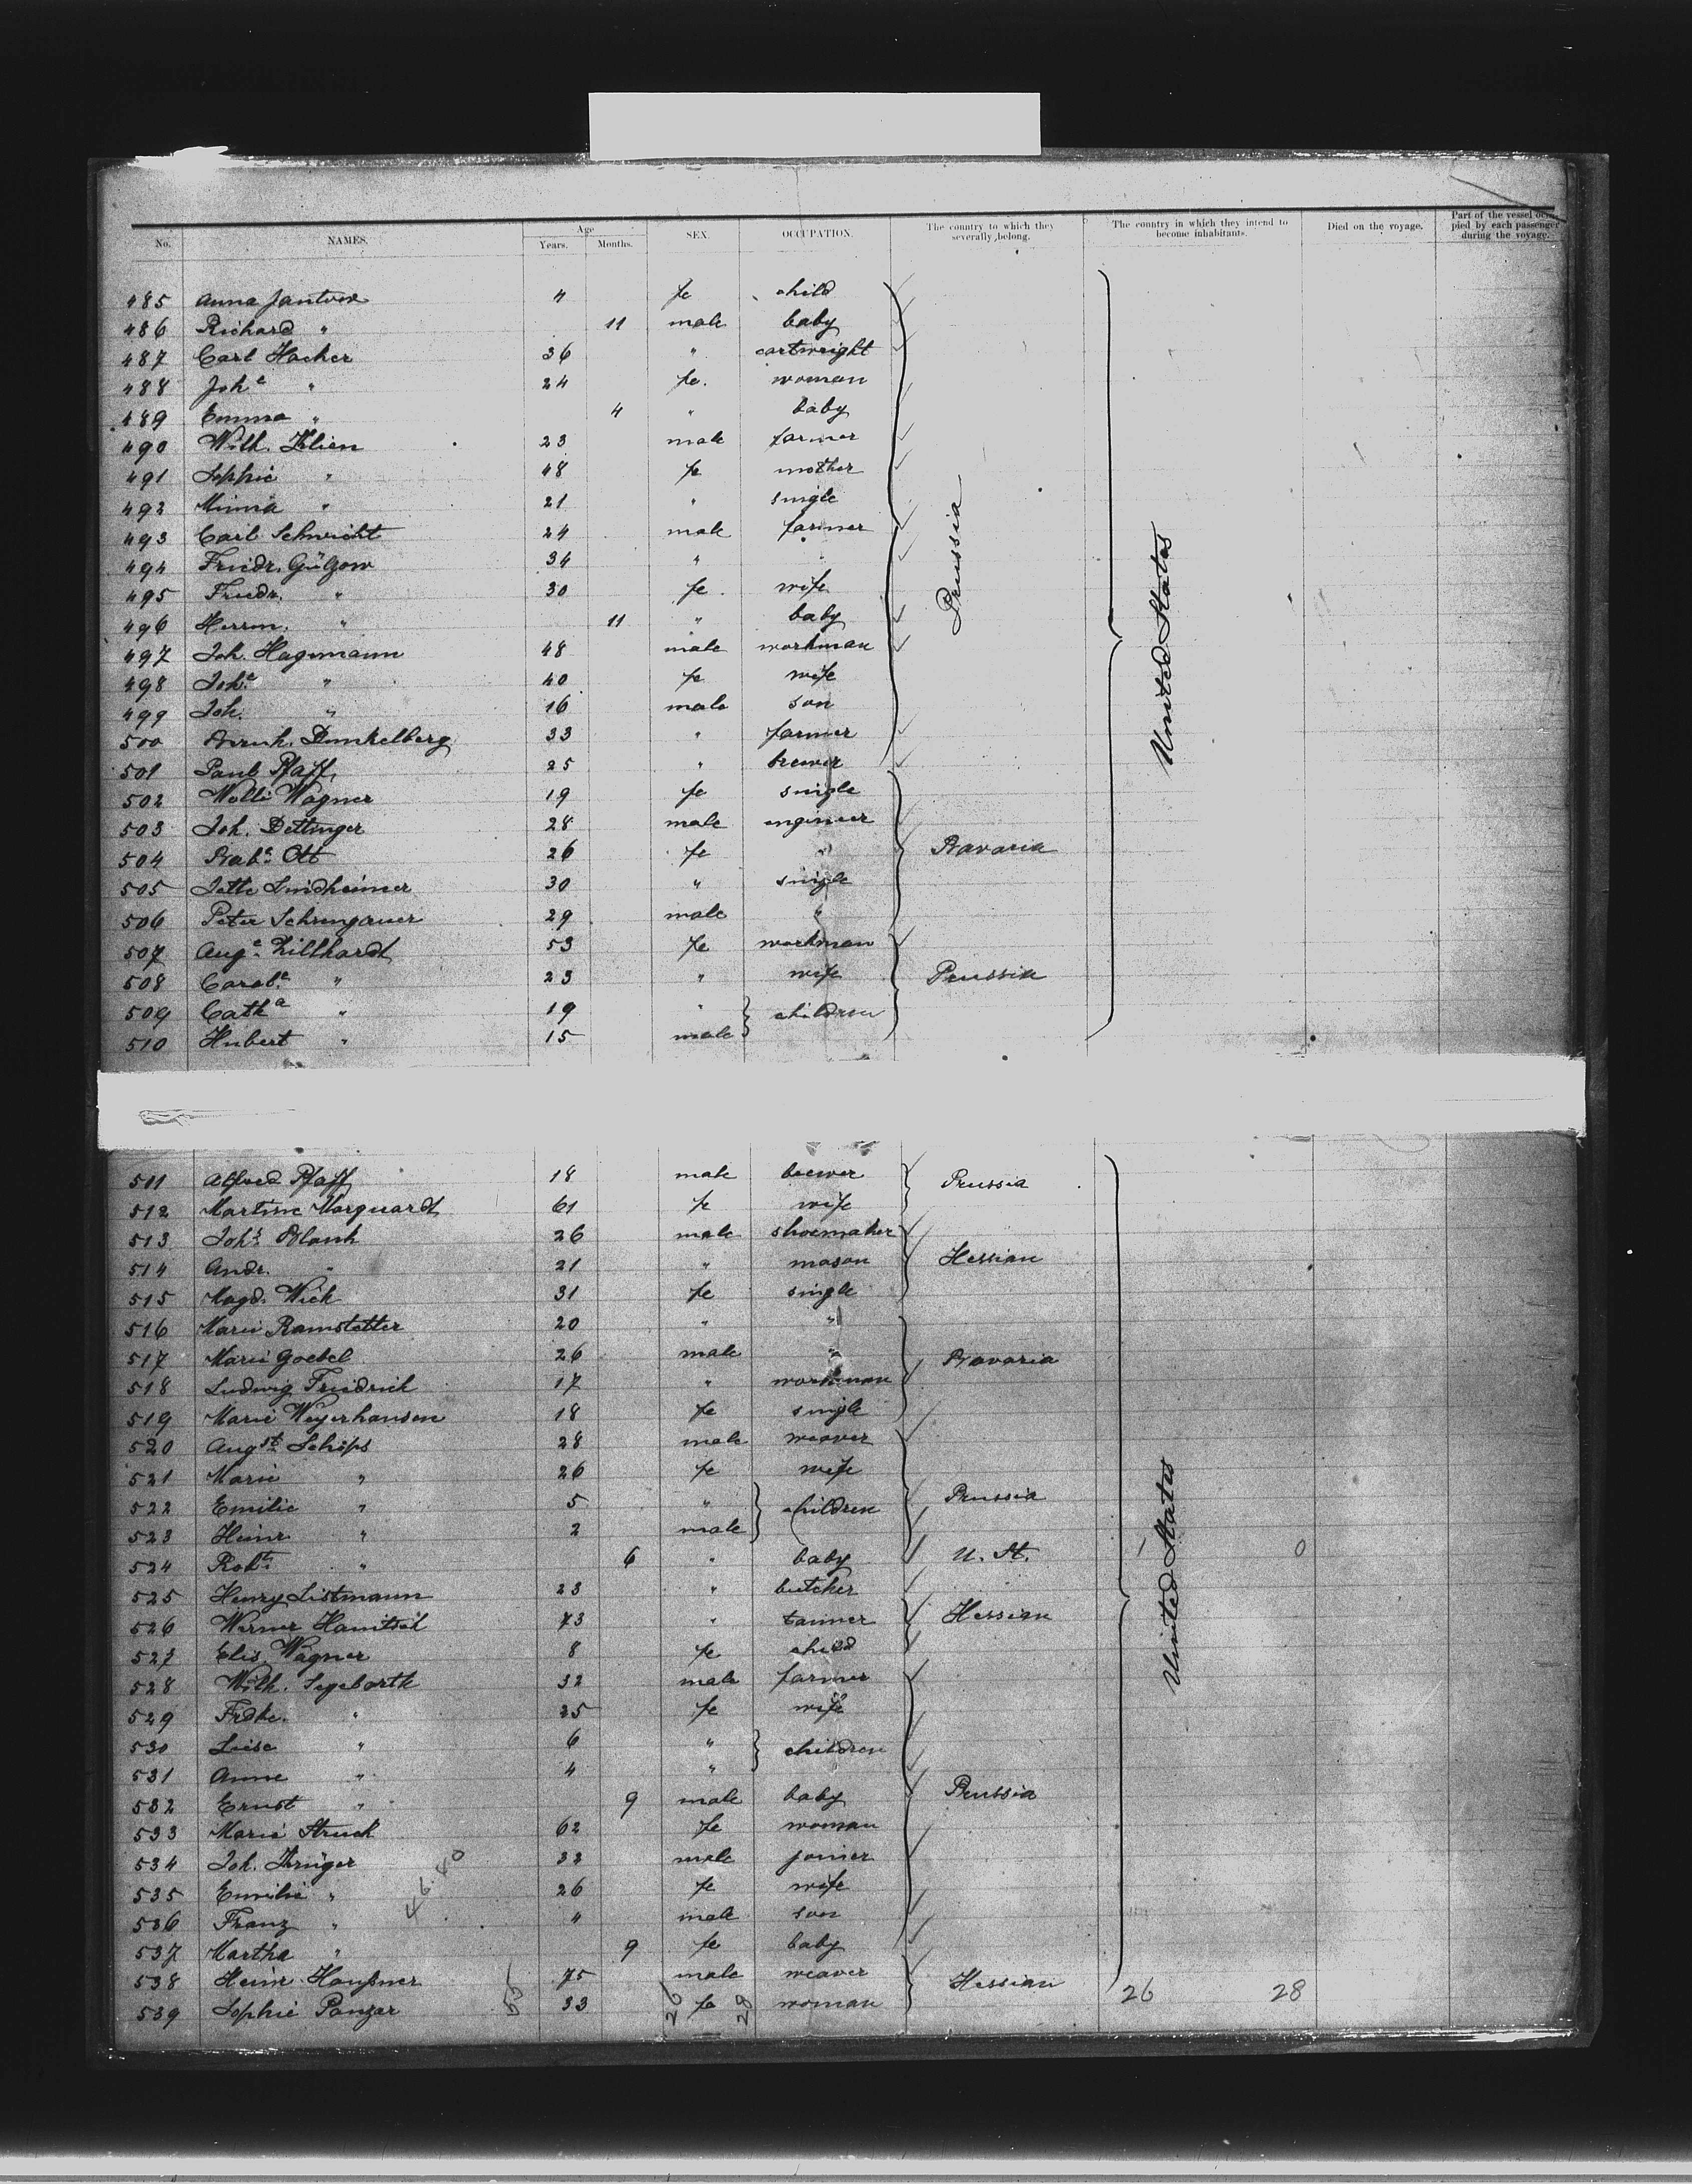 No. NAMES. Age Years. Months. SEX. OCCUPATION. The country to which they severally belong. The country in which they intend to become inhabitants. Died on the voyage. Part of the vessel occupied by each passenger during the voyage.
485 Anna 4 fe child
486 Richard " 11 male baby
487 Carl Hacker 36 " cartwright
488 Johe " 24 fe. woman
489 Emma " 4 " baby
490 Wilh. Klien 23 male farmer
491 Sophie " 48 fe mother
492 Minna " 21 " single
493 Carl Schwicht 24 male farmer
494 Friedr. Gülzow 34 " "
495 Friedr. " 30 fe wife
496 Herrm. " 11 " baby
497 Joh. Hagemann 48 male workman
498 Johe " 40 fe wife
499 Joh. " 16 male son
500 Dunkelberg 33 " farmer
501 Paul Pfaff 25 " brewer
Prussia
United States
502 Wagner 19 fe single
503 Joh. Dettinger 28 male engineer
504 Baba Ott 26 fe " Bavaria
505 Jette Lindheimer 30 " single
506 Peter 29 male "
507 Auge Zillhardt 53 fe workman
508 " 23 " wife Prussia
509 Catha " 19 " children
510 Hubert " 15 male
511 Alfred Pfaff 18 male brewer Prussia
512 Martine Marquardt 61 fe wife
513 Johs Blank 26 male shoemaker
514 Andr. " 21 " mason Hessian
515 Magd. Wick 31 fe single
516 Marie Ramstetter 20 " "
517 Marie Goebel 26 male " Bavaria
518 Ludwig Friedrich 17 " workman
519 Marie Weyerhausen 18 fe single
520 Augst Schips 28 male weaver
521 Marie " 26 fe wife
522 Emilie " 5 " children Prussia
523 Heinr " 2 male
524 Robt " 6 " baby U. St. 0
525 Henry Listmann 23 " butcher
526 Werner 73 " tanner Hessian
527 Elis. Wagner 8 fe child
528 Wilh. Segebarth 32 male farmer
529 Frdke. " 25 fe wife
530 Liese " 6 " children
531 Anne " 4 "
532 Ernst " 9 male baby Prussia
533 Marie Struck 62 fe woman
534 Joh. Krüger 32 male joiner
535 Emilie " 26 fe wife
536 Franz " 4 male son
537 Martha " 9 fe baby
538 Heinr Haußner 75 male weaver
539 Sophie Panzer 33 fe woman Hessian 26 28
United States
26 28